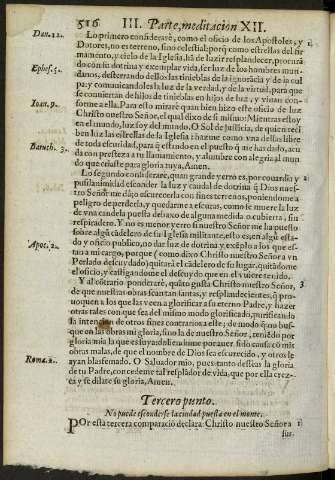 516 III. Parte, meditacion XII.
Dan. 12.
Lo primero considerarè, como el oficio de los Apostoles, y
Dotores, no es terreno, sino celestial: porq̃ como estrellas del fir
mamento, y cielo de la Iglesia, hã de luzir resplandecer, procurã
do con su dotrina y exemplar vida, ser luz de los hombres mun-
Ephes. 5.
danos, desterrando dellos las tinieblas de la ignorãcia y de la cul
pa, y comunicandoles la luz de la verdad, y de la virtud, para que
de hijos de tinieblas en hijos de luz, y viuan con-
Ioan. 9.
forme a ella. Para esto mirarè quan bien hizo este oficio de luz
Christo nuestro Señor, el qual dixo de si mismo: Mientras estoy
en el mundo, luz soy del mundo. O Sol de justicia, de quien reci
ben luz las estrellas de la Iglesia
Baruch. 3.
de toda escuridad, para q̃ estando en el puesto q̃ me has dado, acu
da con presteza a tu llamamiento, y alumbre con alegria al mun
do que criaste para gloria tuya, Amen.
Lo segundo considerarè, quan grande yerro es, por couardia y
pusilanimidad esconder la luz y caudal de dotrina q̃ Dios nues-
tro Señor me dio escurecerla con fines terrenos, poniendome a
peligro de perderla, y quedarme a escuras, como se muere la luz
de vna candela puesta debaxo de alguna medida o cubierta, sin
respiradero. Y no es menor yerro si nuestro Señor me ha puesto
sobre algũ cãdelero de su Iglesia militante, esto es, en algũ esta-
Apoc. 2.
do y oficio publico, no dar luz de dotrina y exẽplo a los que es-
tan a mi cargo, porque (como dixo Christo nuestro Señor a vn
Perlado descuydado) quitarà el cãdelero de su lugar, quitãdome
el oficio, y castigandome el descuydo que en el viuere tenido.
Y al cõtrario ponderarè, quãto gusta Christo nuestro Señor,
3
de que nuestras obras sean tan santas, y resplandecientes, q̃ pro-
uoquen a los que las veen a glorificar a su eterno Padre, y hazer
otras tales con que sea del mismo modo glorificado, purificando
la intencion de otros fines contrarios a este; de modo q̃ no bus-
que en las obras mi gloria, sino la de nuestro Señor, teniẽdo por
gloria mia la que es suya
Roma. 2.
obras malas, de que el nombre de Dios sea escurecido, y otros le
ayan blasfemado. O Saluador mio, pues tanto desseas la gloria
de tu Padre, concedeme tal resplandor de vida, que por ella crez-
ca y se dilate su gloria, Amen.
Tercero punto.
No puede esconderse la ciudad puesta en el monte.
POr esta tercera comparaciõ declara Christo nuestro Señor a
sus